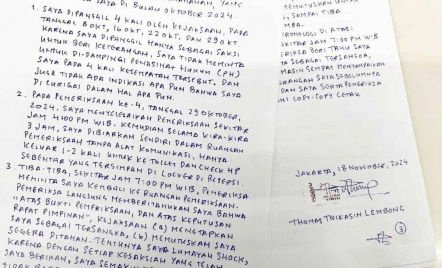 SAYA DI BULAN OKTOBER 2024.
1. SAYA DIPANGGIL 4 KALI OLEH KEJAKSAAN, PADA
TANGGAL 8 OKT, 16 OKT, 22 OKT, DAN 29 OKT.
KARENA SAYA DIPANGGIL HANYA SEBAGAI SAKSI
UNTUK BERI KETERANGAN, SAYA TIDAK MEMINTA
UNTUK DI-DAMPINGI PENASIHAT HUKUM (PH)
SAYA PADA 4 KALI KESEMPATAN TERSEBUT. DAN
JUGA TIDAK ADA INDIKASI APA PUN BAHWA SAYA
DI CURIGAI DALAM HAL APA PUN.
2. PADA PEMERIKSAAN KE-4, TANGGAL 29 OKTOBER,
2024, SAYA MENYELESAIKAN PEMERIKSAAN SEKITAR
JAM 4:00 PM WIB. KEMUDIAN SELAMA KIRA-KIRA
3 JAM, SAYA DIBIARKAN SENDIRI DALAM RUANGAN
PEMERIKSAAN TANPA ALAT KOMUNIKASI, HANYA
KELUAR 1-2 KALI UNTUK KE TOILET DAN CHECK HP
SEBENTAR YANG TERSIMPAN DI LOCKER DI RESEPSI.
3. TIBA-TIBA, SEKITAR JAM 7:00 PM WIB, PEMERIKSA
MEMINTA SAYA KEMBALI KE RUANGAN PEMERIKSAAN.
PEMERIKSA LANGSUNG MEMBERITAHUKAN SAYA BAHWA
"ATAS BUKTI PEMERIKSAAN, DAN ATAS KEPUTUSAN
RAPAT PIMPINAN", KEJAKSAAN (a) MENETAPKAN
SAYA SEBAGAI TERSANGKA, (b) MEMUTUSKAN SAYA
SEGERA DITAHAN. TENTUNYA SAYA LUMAYAN SHOCK,
KARENA DENGAN SETIAP KESAKSIAN YANG TELAH
SAYA BERIKAN, SAYA SEMAKIN
MEMUTUSKAN UNTUK
SAMPAI TIBA
DI ATAS:
SEKITAR JAM 7:00 PM WIB
BERI TAHU SAYA
SEBAGAI TERSANGKA,
MASIH SEMPAT MENYAMPAIKAN
SAYA SEBELUMNYA
DAN SAYA SERTA PEMERIKSA
COPY-COPY CETAK
JAKARTA, 18 NOVEMBER, 2024
THOMAS TRIKASIH LEMBONG
3